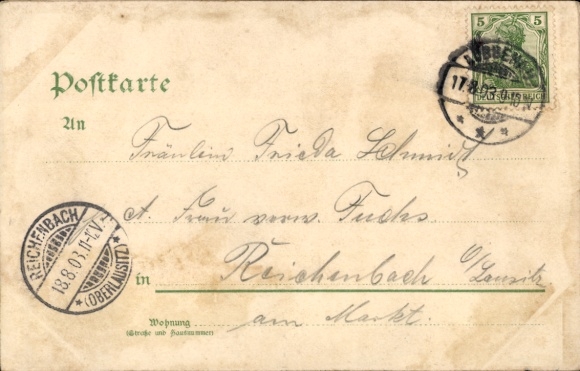 Postkarte
5 5
DEUTSCHES REICH
17.8.03.
An
Fräulein Frieda Schmidt
Frau verw. Fuchs
REICHENBACH
18.8.03.11-12V.
* (OBERLAUSITZ) *
in Reichenbach O/Lausitz
Wohnung
(Straße und Hausnummer)
am Markt.